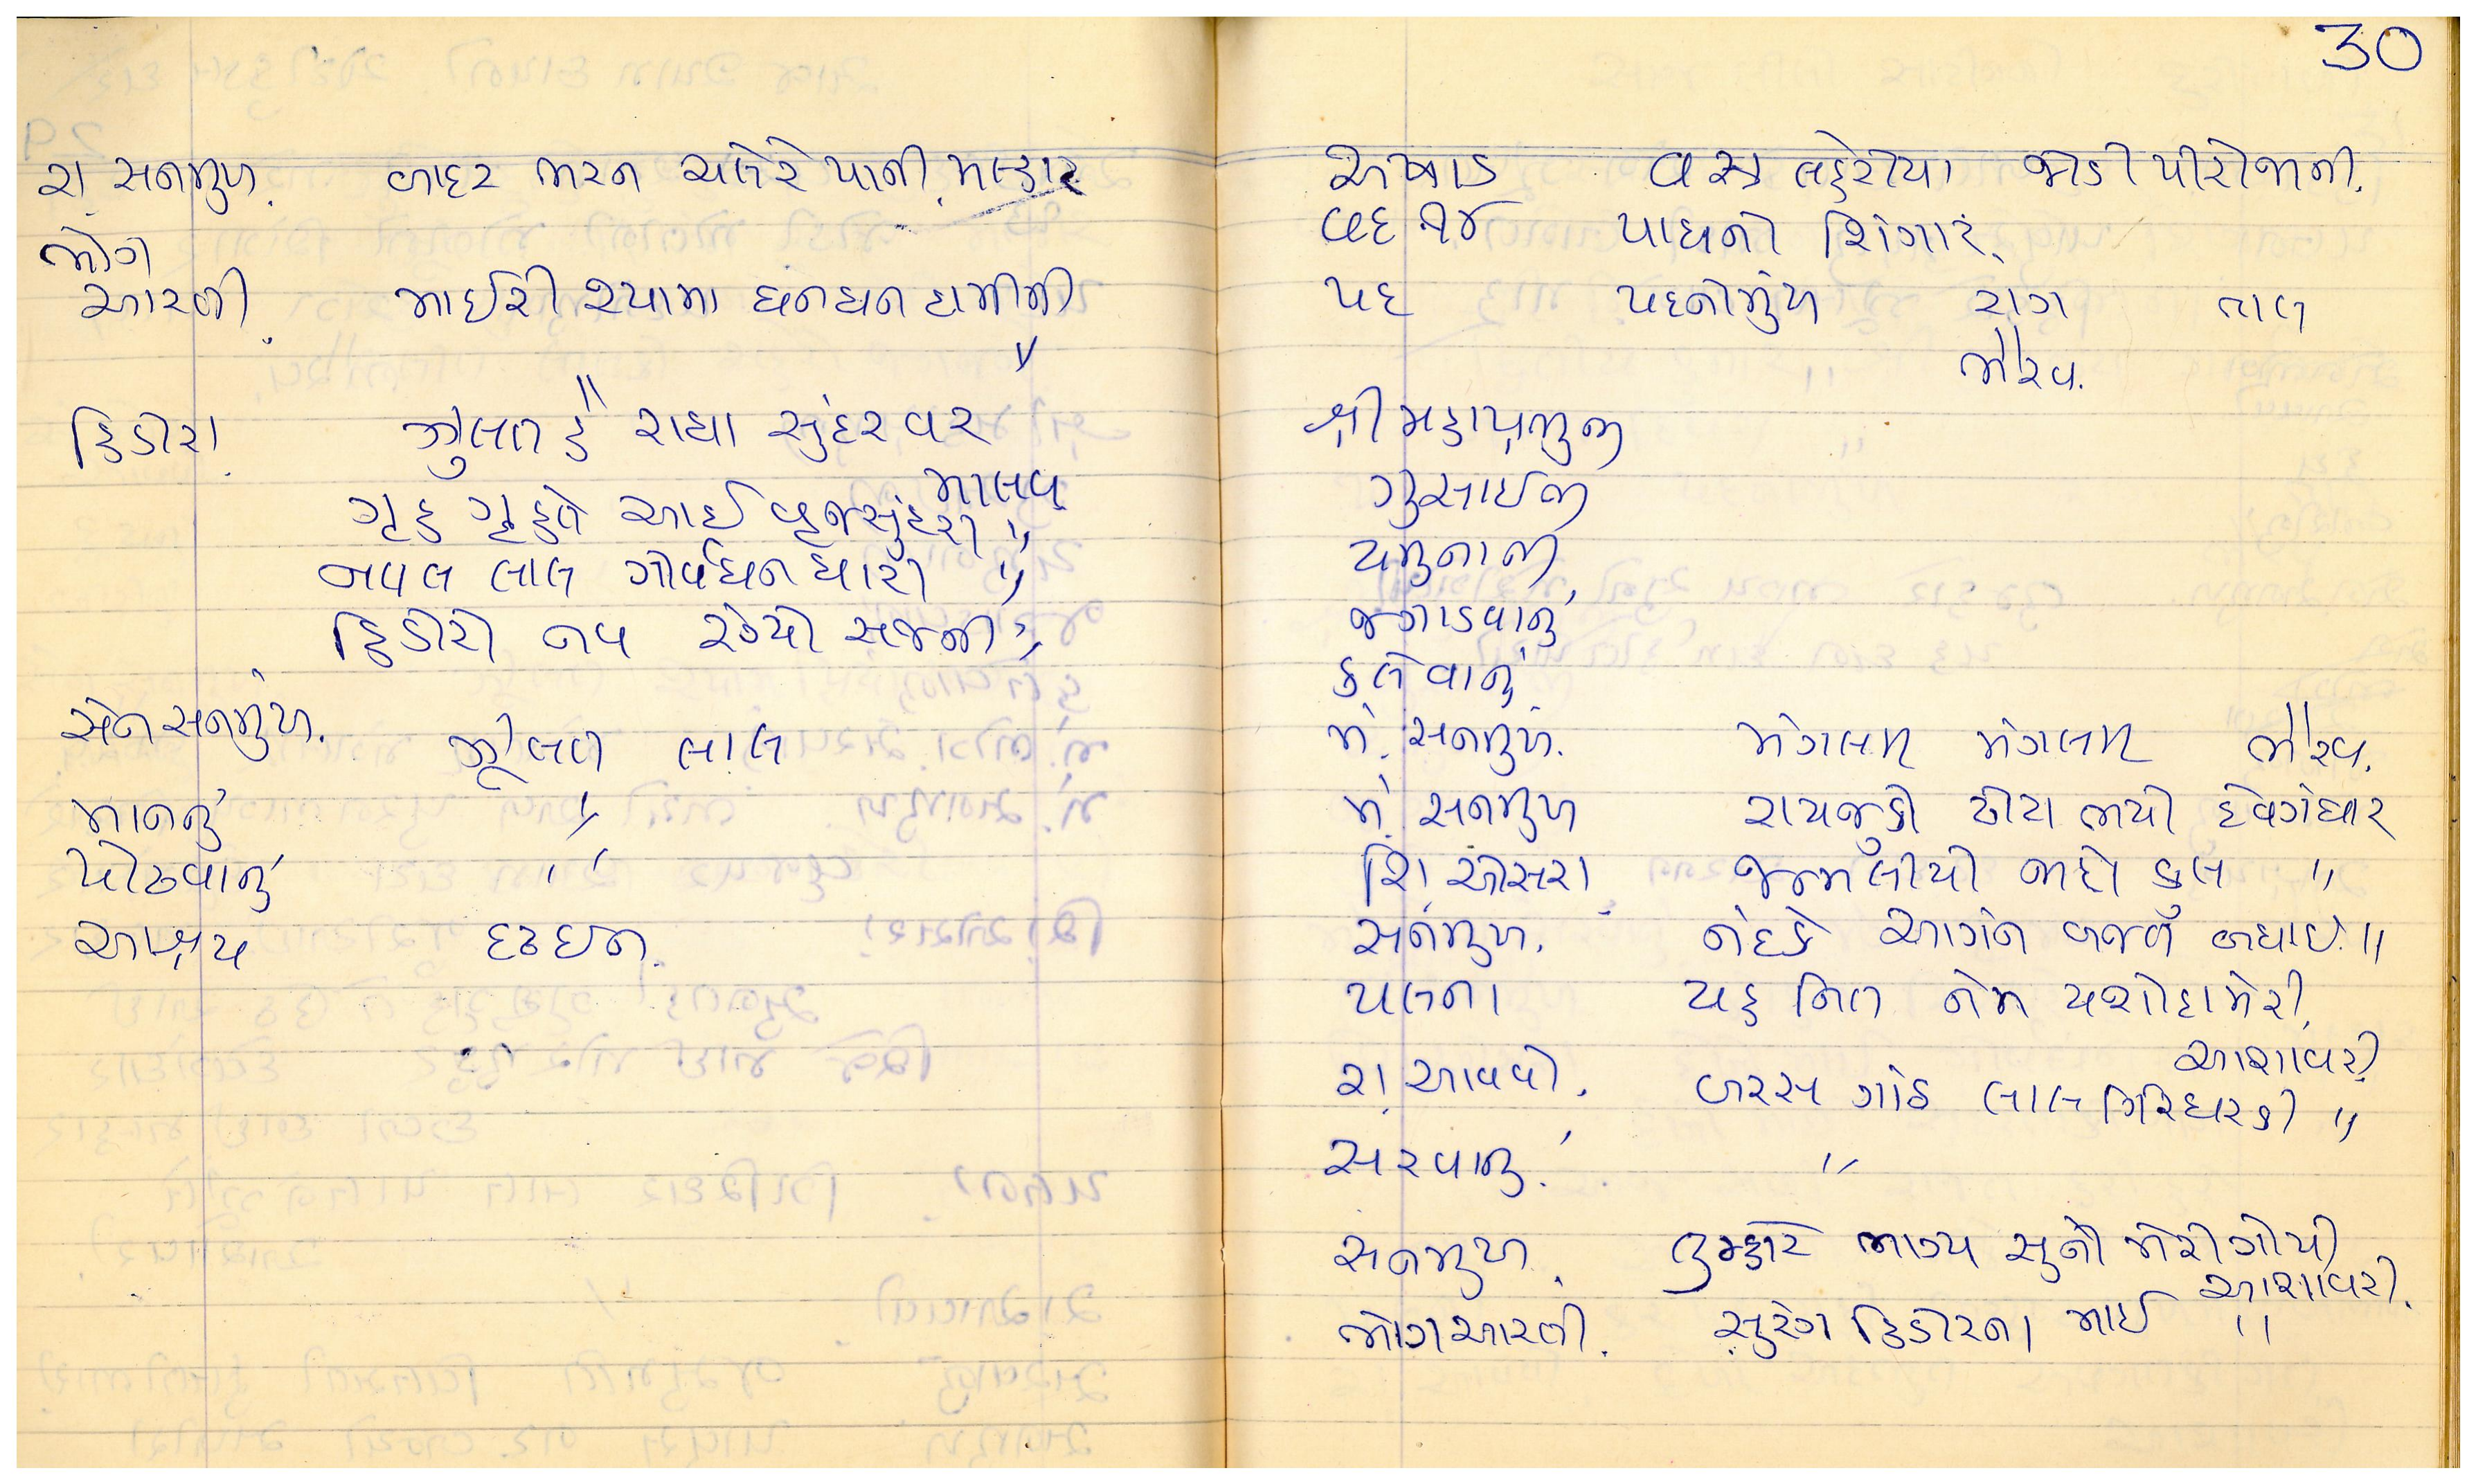 રા. સનમુખ. બાદર ભરન ચલેરે પાની. મલ્હાર
ભોગ
આરતી. માઈરી શ્યામા ઘનઘન દામીની
〃
હિંડોરા. ઝુલત હૈ રાધા સુંદરવર
માલવ
ગૃહ ગૃહતે આઈ વ્રજસુંદરી 〃
નવલ લાલ ગોર્વધનધારી 〃
હિંડોરો નવ રચ્યો સજની 〃
સેન સનમુખ. ઝૂલત લાલ
માનનું 〃
પોઢવાનું 〃
આશ્રય દ્રઢઇન.
30
અષાડ વસ્ત્ર લહેરીયા જોડી પીરોજાની.
વદ પાઘનો શિંગાર.
પદ પદનોમુખ રાગ તાલ
ભૈરવ.
શ્રી મહાપ્રભુજી
ગુસાઈજી
યમુનાજી
જગાડવાનું
કલેવાનું
મં. સનમુખ. મંગલમ મંગલમ ભૈરવ.
મં. સનમુખ રાયજુકો ઢોટા ભયો દેવગંધાર
શિં. ઓસરા જન્મલીયો જાદો કુલ 〃
સનમુખ. નંદકે આગંન બજત બધાઈ 〃
પલના યહ નિત નેમ યશોદામેરી.
આશાવરી.
રા. આવવો. બરસ ગાંઠ લાલ ગિરિધરકી 〃
સરવાનું. 〃
સનમુખ. તુમ્હારે ભાગ્ય સુનો મેરી ગોપી
આશાવરી.
ભોગઆરતી. સુરંગ હિંડોરના માઈ 〃